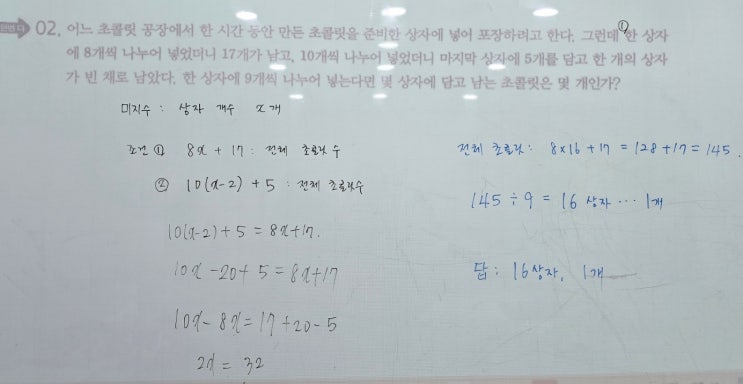 02. 어느 초콜릿 공장에서 한 시간 동안 만든 초콜릿을 준비한 상자에 넣어 포장하려고 한다. 그런데 ① 한 상자
에 8개씩 나누어 넣었더니 17개가 남고, 10개씩 나누어 넣었더니 마지막 상자에 5개를 담고 한 개의 상자
가 빈 채로 남았다. 한 상자에 9개씩 나누어 넣는다면 몇 상자에 담고 남는 초콜릿은 몇 개인가?
미지수 : 상자 개수 x개
조건 ① 8x + 17 : 전체 초콜릿 수
② 10(x-2) + 5 : 전체 초콜릿수
10(x-2)+5 = 8x+17.
10x -20+5 = 8x+17
10x - 8x = 17+20-5
2x = 32
전체 초콜릿 : 8×16 +17 = 128+17 = 145.
145 ÷ 9 = 16 상자 … 1개
답 : 16상자, 1개